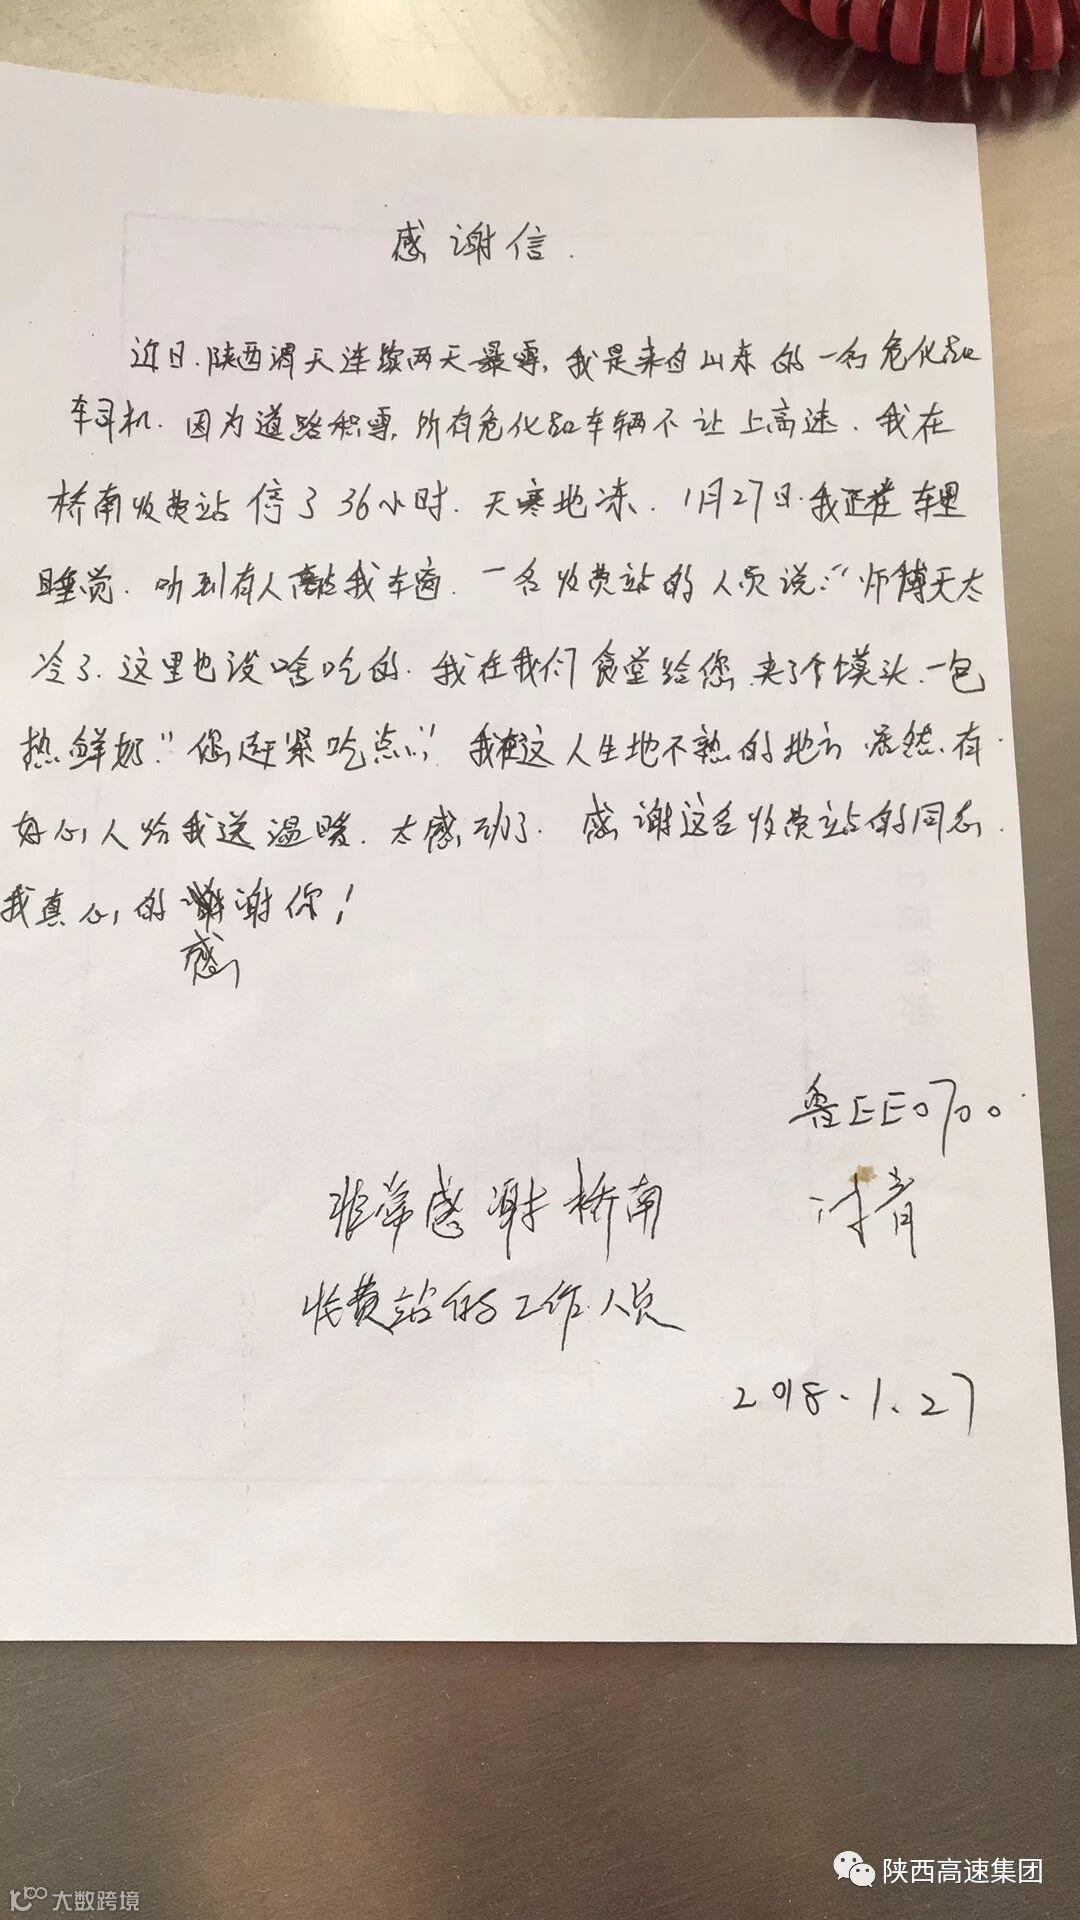 感谢信.
近日.陕西渭天连续两天暴雪,我是来自山东的一名危化品
车司机.因为道路积雪,所有危化品车辆不让上高速.我在
桥南收费站停了36小时.天寒地冻.1月27日.我正在车里
睡觉.听到有人敲我车窗.一名收费站的人员说:"师傅天太
冷了.这里也没啥吃的.我在我们食堂给您夹了个馍头.一包
热鲜奶"您赶紧吃点"我在这人生地不熟的地方居然有
好心人给我送温暖.太感动了.感谢这名收费站的同志.
我真心的感谢你!
鲁EE0700
青
非常感谢桥南
收费站的工作人员
2018.1.27
陕西高速集团
大数跨境